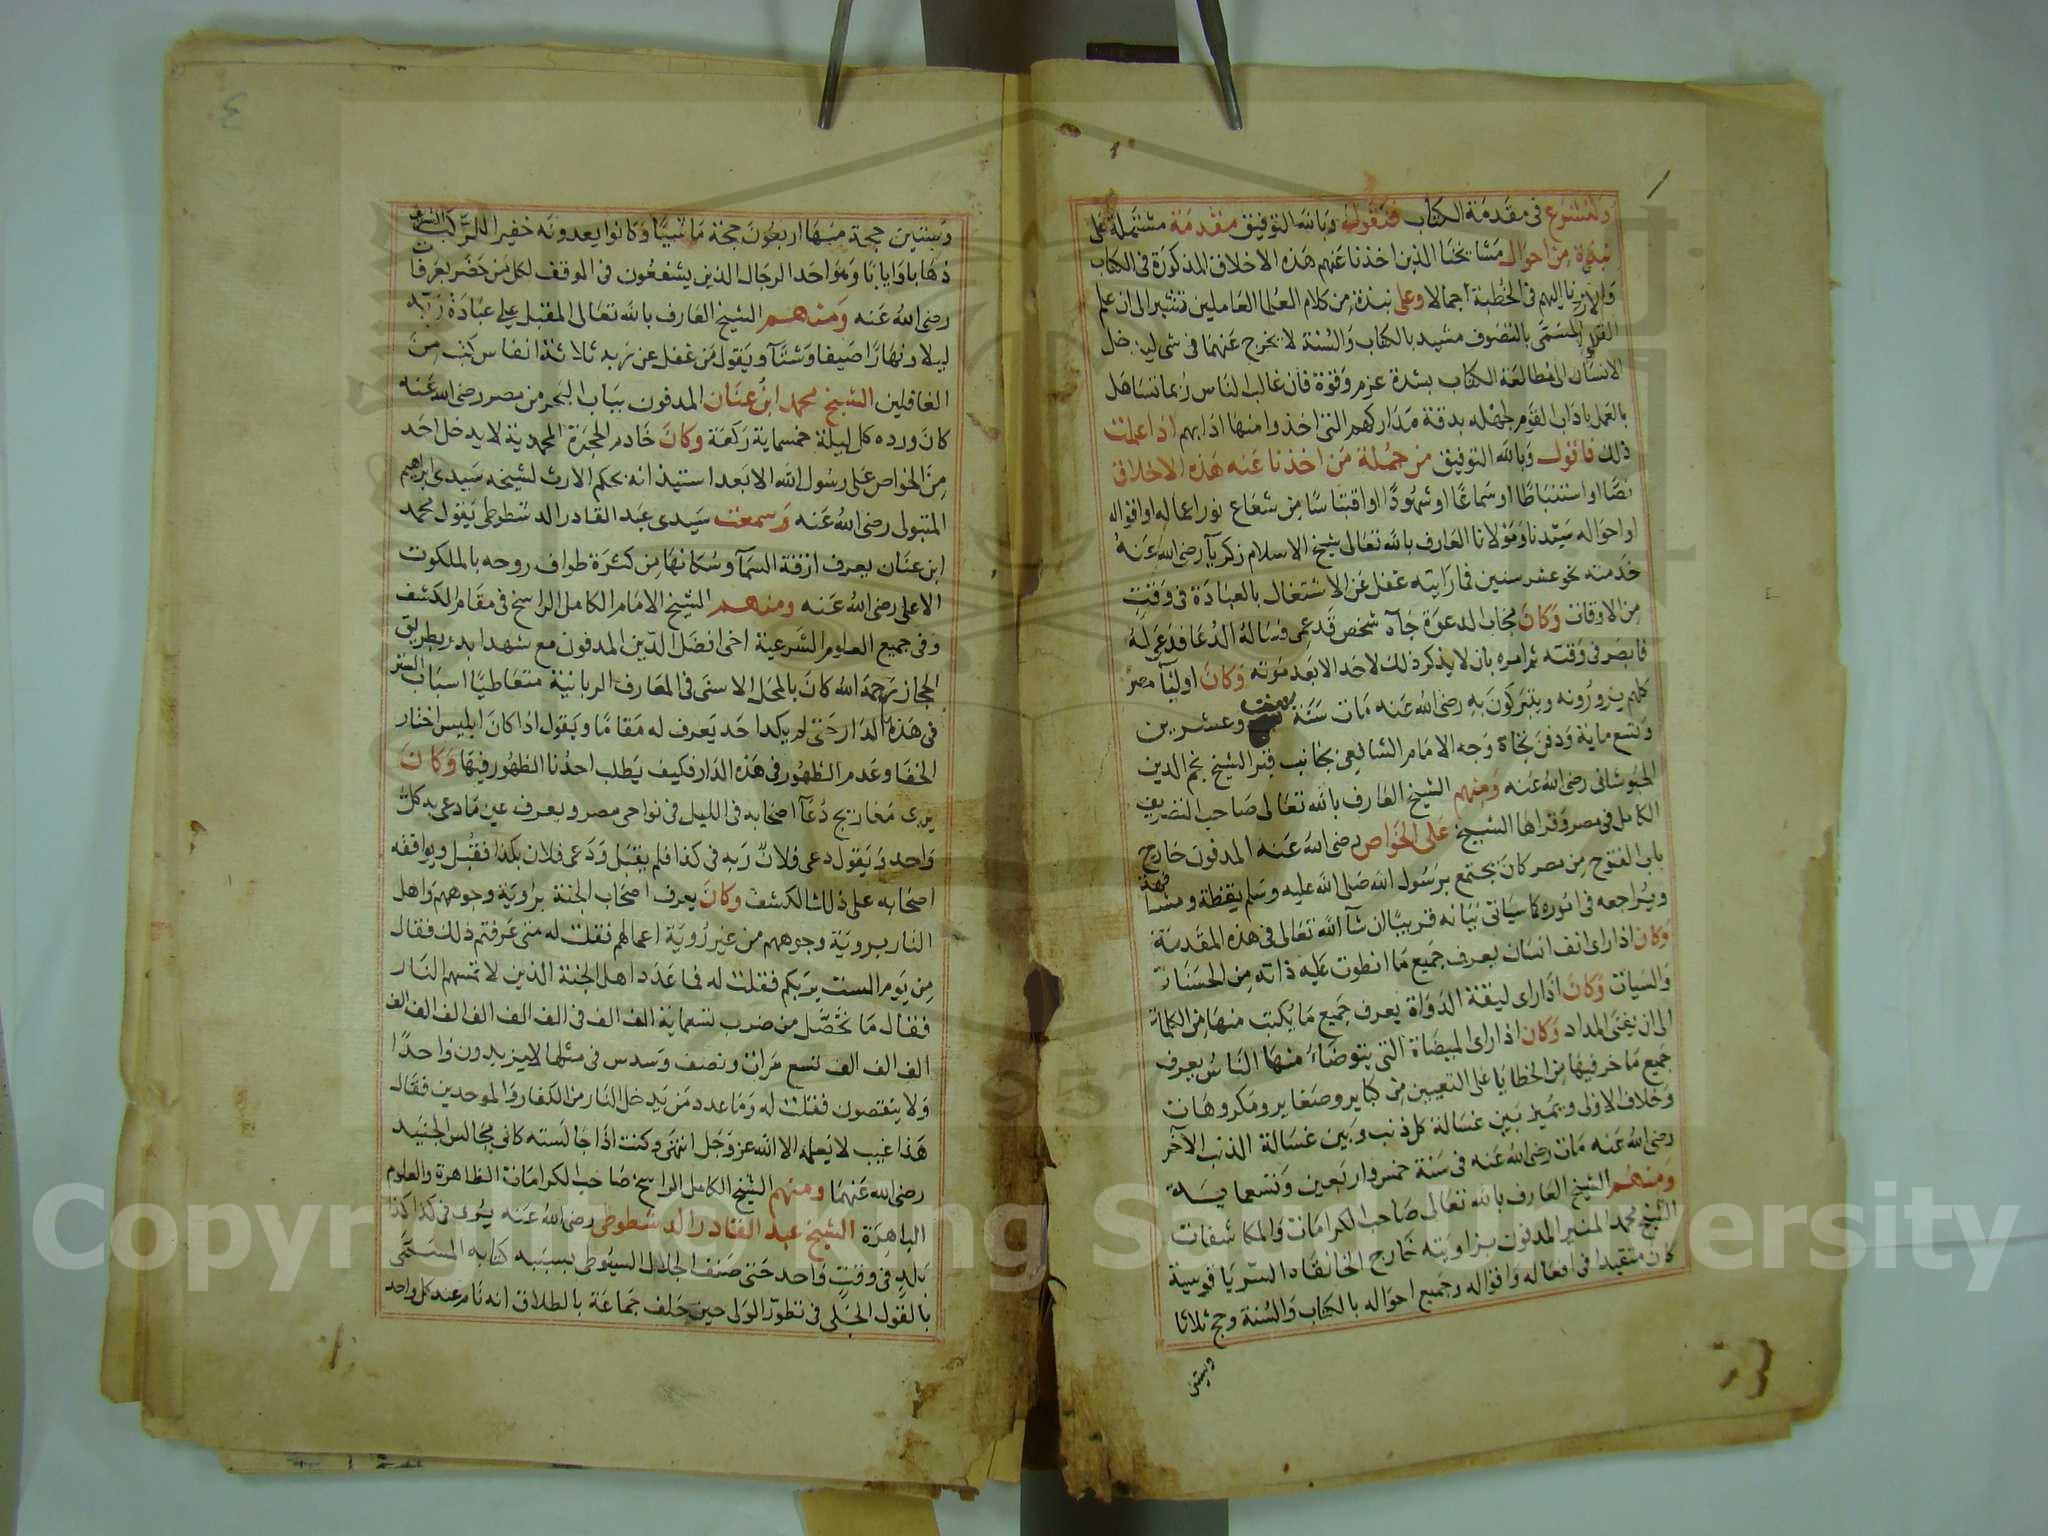 ولنشرع في مقدمة الكتاب فنقول وبالله التوفيق مقدمة مشتملة على
نبذة من احوال مشايخنا الذين اخذنا عنهم هذه الاخلاق المذكورة في الكتاب
اليهم في الخطبة اجمالا وعلى نبذة من كلام العلما العاملين تشير الى ان علم
القوم المسمى بالتصوف مشيد بالكتاب والسنة لا يخرج عنهما في شي
الانسان الى مطالعة الكتاب بشدة عزم وقوة فان غالب الناس ربما تساهل
بالعمل باداب القوم لجهله بدقة مداركهم التي اخذوا منها ادابهم اذا علمت
ذلك فاقول وبالله التوفيق من جملة من اخذنا عنه هذه الاخلاق
نصا او استنباطا او سماعا او شهودا او اقتباسا من شعاع نور اعماله او اقواله
او احواله سيدنا ومولانا العارف بالله تعالى شيخ الاسلام زكريا رضي الله عنه
خدمته نحو عشر سنين فما رايته غفل عن الاشتغال بالعبادة في وقت
من الاوقات وكان مجاب الدعوة جآه شخص قد عمي وساله الدعا فدعى له
فابصر في وقته ثم امره بان لا يذكر ذلك لاحد الا بعد موته وكان اوليآ مصر
كلهم يزورونه ويتبركون به رضي الله عنه مات سنة وعشرين
وتسعماية ودفن تجاه وجه الامام الشافعي بجانب قبر الشيخ نجم الدين
الخبوشاني رضي الله عنه ومنهم الشيخ العارف بالله تعالى صاحب التصريف
الكامل في مصر وقراها الشيخ على الخواص رضي الله عنه المدفون خارج
باب الفتوح من مصر كان يجتمع برسول الله صلى الله عليه وسلم يقظة ومشافهة
ويراجعه في اموره كما سياتي بيانه قريبا ان شآ الله تعالى في هذه المقدمة
وكان اذا راى انف انسان يعرف جميع ما انطوت عليه ذاته من الحسنات
والسيات وكان اذا راى ليقة الدواة يعرف جميع ما يكتب منها من الكلمات
الى ان يفنى المداد وكان اذا راى الميضاة التي يتوضا منها الناس يعرف
جميع ما خر فيها من الخطايا على التعيين من كباير وصغاير ومكروهات
وخلاف الاولى ويميز بين غسالة كل ذنب وبين غسالة الذنب الآخر
رضي الله عنه مات رضي الله عنه في سنة خمس واربعين وتسعماية
ومنهم الشيخ العارف بالله تعالى صاحب الكرامات والمكاشفات
الشيخ محمد المنير المدفون بزاويته خارج الخانقاه السرياقوسية
كان متقيدا في افعاله واقواله وجميع احواله بالكتاب والسنة وحج ثلاثا
وستين
٤
وستين حجة منها اربعون حجة ماشيا وكانوا يعدونه خفير الركب الشريف
ذهابا وايابا وهو احد الرجال الذين يشفعون في الموقف لكل من حضر بعرفات
رضي الله عنه ومنهم الشيخ العارف بالله تعالى المقبل على عبادة ربه
ليلا ونهارا صيفا وشتآ ويقول من غفل عن ربه ثلاثة انفاس كتب من
الغافلين الشيخ محمد ابن عنان المدفون بباب البحر من مصر رضي الله عنه
كان ورده كل ليلة خمسماية ركعة وكان خادم الحجرة المحمدية لا يدخل احد
من الخواص على رسول الله الا بعد استيذانه بحكم الارث لشيخه سيدي ابراهيم
المتبولي رضي الله عنه وسمعت سيدي عبد القادر الدشطوطي يقول محمد
ابن عنان يعرف ازقة السمآ وسكانها من كثرة طواف روحه بالملكوت
الاعلى رضي الله عنه ومنهم الشيخ الامام الكامل الراسخ في مقام الكشف
وفي جميع العلوم الشرعية اخي افضل الدين المدفون مع شهدا بدر بطريق
الحجاز رحمه الله كان بالمحل الاسنى في المعارف الربانية متعاطيا اسباب الستر
في هذه الدار حتى لم يكد احد يعرف له مقاما ويقول اذا كان ابليس اختار
الخفا وعدم الظهور في هذه الدار فكيف يطلب احدنا الظهور فيها وكان
يرى معاريج دعآ اصحابه في الليل في نواحي مصر ويعرف عين ما دعى به كل
واحد ويقول دعى فلان ربه في كذا فلم يقبل ودعى فلان بكذا فقبل ويوافقه
اصحابه على ذلك الكشف وكان يعرف اصحاب الجنة بروية وجوههم واهل
النار بروية وجوههم من غير روية اعمالهم فقلت له متى عرفتم ذلك فقال
من يوم الست بربكم فقلت له فما عدد اهل الجنة الذين لا تمسهم النار
فقال ما تحصل من ضرب تسعماية الف الف في الف الف الف الف الف
الف الف الف تسع مرات ونصف وسدس في مثلها لا يزيدون واحدا
ولا ينقصون فقلت له وما عدد من يدخل النار من الكفار والموحدين فقال
هذا غيب لا يعلمه الا الله عز وجل انتهى وكنت اذا جالسته كاني مجالس الجنيد
رضي الله عنهما ومنهم الشيخ الكامل الراسخ صاحب الكرامات الظاهرة والعلوم
الباهرة الشيخ عبد القادر الدشطوطي رضي الله عنه يرى في كذا كذا
بلد في وقت واحد حتى صنف الجلال السيوطي بسببه كتابه المسمى
بالقول الجلي في تطور الولي حين حلف جماعة بالطلاق انه نام عند كل واحد
Copyright © King Saud University
1957